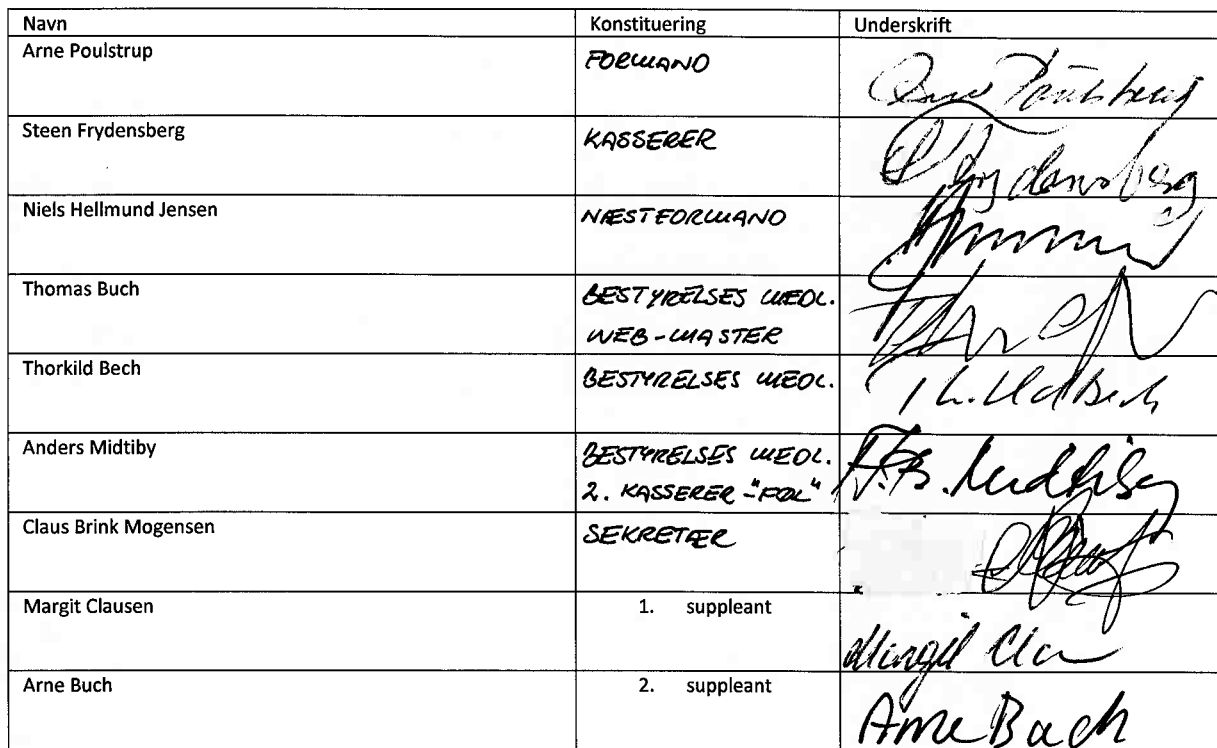 Navn Konstituering Underskrift
Arne Poulstrup FORMAND
Steen Frydensberg KASSERER
Frydensberg
Niels Hellmund Jensen NÆSTFORMAND
Thomas Buch BESTYRELSES MEDL.
WEB-MASTER
Thorkild Bech BESTYRELSES MEDL.
Anders Midtiby BESTYRELSES MEDL.
2. KASSERER -"FØL"
Claus Brink Mogensen SEKRETÆR
Margit Clausen 1. suppleant
Margit
Arne Buch 2. suppleant
Arne Buch